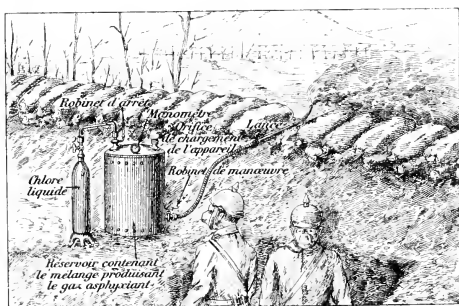 Robinet d'arrêt
Manomètre
Orifice
de chargement
de l'appareil
Lance
Robinet de manœuvre
Chlore
liquide
Réservoir contenant
le mélange produisant
le gaz asphyxiant